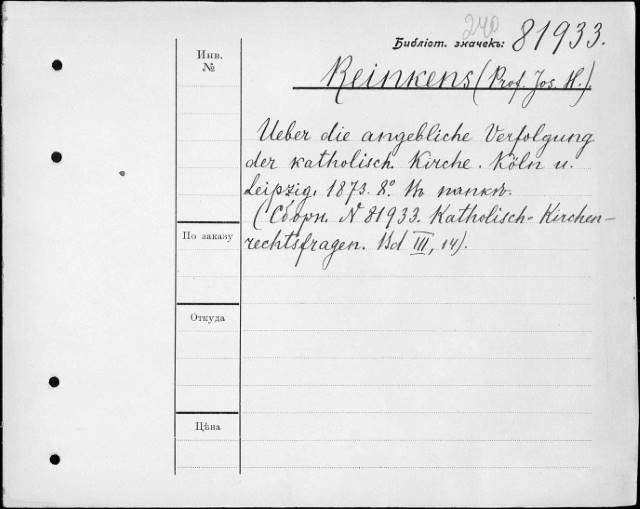 240
Библіот. значекъ: 81933.
Инв. №
Reinkens (Prof. Jos. H.)
Ueber die angebliche Verfolgung
der katholisch. Kirche. Köln u.
Leipzig, 1873. 8º. Въ папкѣ.
(Сборн. N 81933. Katholisch-Kirchen-
rechtsfragen. Bd III, 14).
По заказу
Откуда
Цѣна